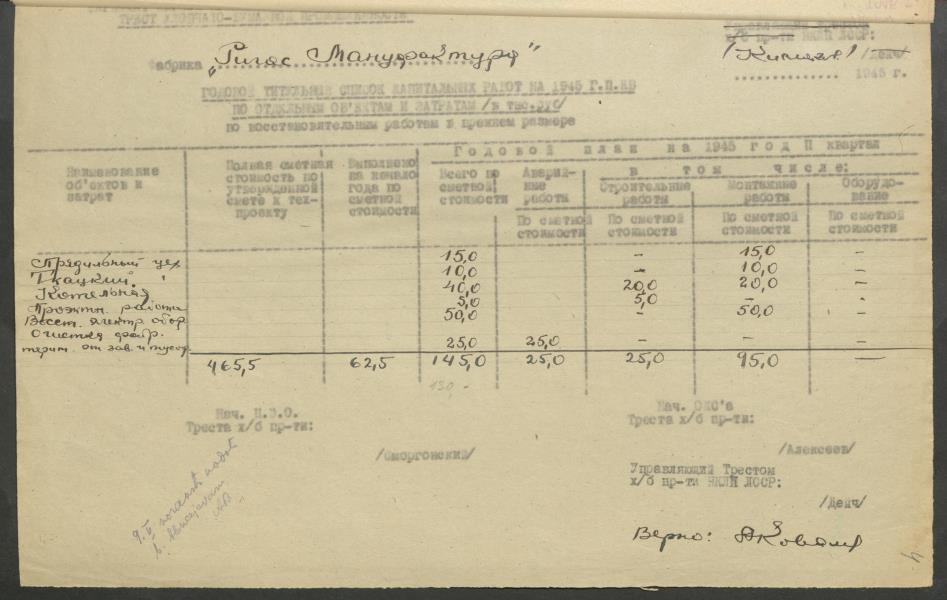 ТРЕСТ ХЛОПЧАТО-БУМАЖНОЙ ПРОМЫШЛЕННОСТИ
х/б пр-ти НКЛП ЛССР:
Фабрика „Ригас Мануфактура"
/Денч/
1945 г.
ГОДОВОЙ ТИТУЛЬНЫЙ СПИСОК КАПИТАЛЬНЫХ РАБОТ НА 1945 Г.П.КВ
ПО ОТДЕЛЬНЫМ ОБ'ЕКТАМ И ЗАТРАТАМ /в тыс.руб/
по восстановительным работам в прежнем размере
Наименование об'ектов и затрат
Полная сметная стоимость по утвержденной смете к тех-проекту
Выполнено на начало года по сметной стоимости
Годовой план на 1945 год П квартал
Всего по сметной стоимости
Аварий-ные работы
в том числе:
Строительные работы
Монтажные работы
Оборудо-вание
По сметной стоимости
По сметной стоимости
По сметной стоимости
По сметной стоимости
Прядильный цех 15,0 – 15,0 –
Ткацкий " 10,0 – 10,0 –
Котельная 40,0 20,0 20,0 –
Проэктн. работы 5,0 5,0 –
Восст. электр. обор. 50,0 – 50,0 –
Очистка фабр.
терит. от зав. и мусор. 25,0 25,0 – – –
465,5 62,5 145,0 25,0 25,0 95,0 –
130,-
Нач. П.Э.О.
Треста х/б пр-ти:
/Сморгонский/
Нач. ОКС'а
Треста х/б пр-ти:
/Алексеев/
Управляющий Трестом
х/б пр-ти НКЛП ЛССР:
/Денч/
Верно: